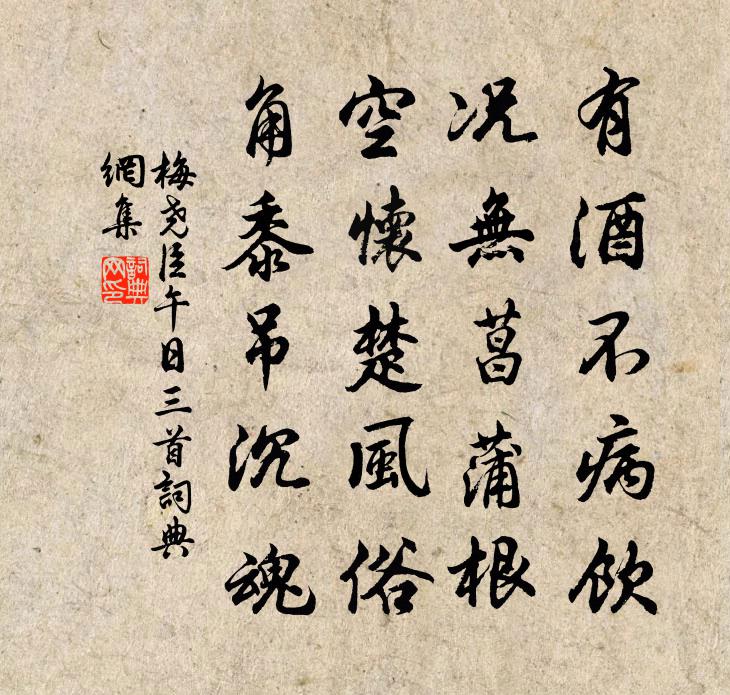 有酒不病飲
況無菖蒲根
空懷楚風俗
角黍吊沉魂
梅堯臣午日三首詞典
網集
詞典
网印